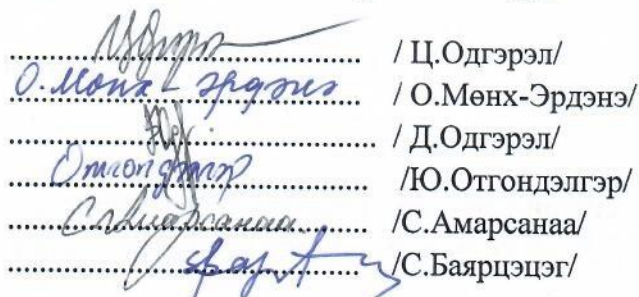 / Ц.Одгэрэл/
О.Мөнх-Эрдэнэ / О.Мөнх-Эрдэнэ/
/ Д.Одгэрэл/
Отгондэлгэр /Ю.Отгондэлгэр/
С.Амарсанаа /С.Амарсанаа/
/С.Баярцэцэг/